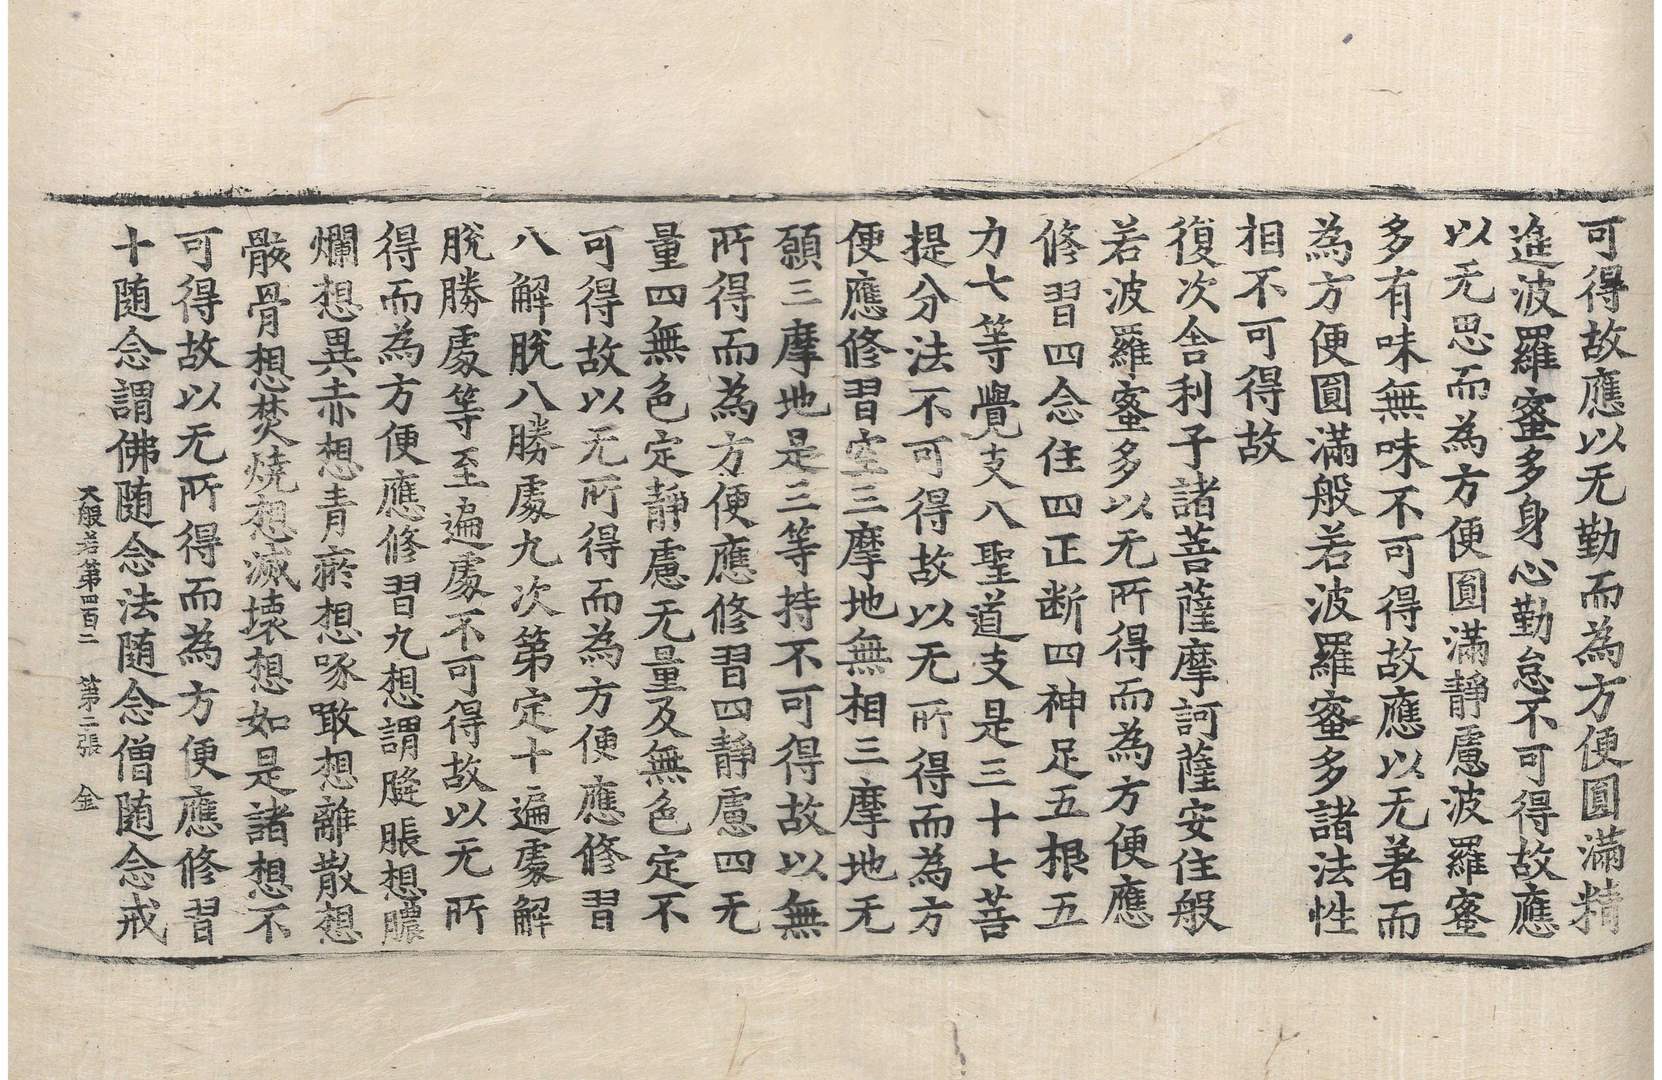 可得故應以无勤而為方便圓滿精
進波羅蜜多身心勤怠不可得故應
以无思而為方便圓滿靜慮波羅蜜
多有味無味不可得故應以无著而
為方便圓滿般若波羅蜜多諸法性
相不可得故
復次舍利子諸菩薩摩訶薩安住般
若波羅蜜多以无所得而為方便應
修習四念住四正断四神足五根五
力七等覺支八聖道支是三十七菩
提分法不可得故以无所得而為方
便應修習空三摩地無相三摩地无
願三摩地是三等持不可得故以無
所得而為方便應修習四靜慮四无
量四無色定靜慮无量及無色定不
可得故以无所得而為方便應修習
八解脫八勝處九次第定十遍處解
脫勝處等至遍處不可得故以无所
得而為方便應修習九想謂膖脹想膿
爛想異赤想青瘀想啄噉想離散想
骸骨想焚燒想滅壞想如是諸想不
可得故以无所得而為方便應修習
十随念謂佛随念法随念僧随念戒
大般若第四百二　第二張　金